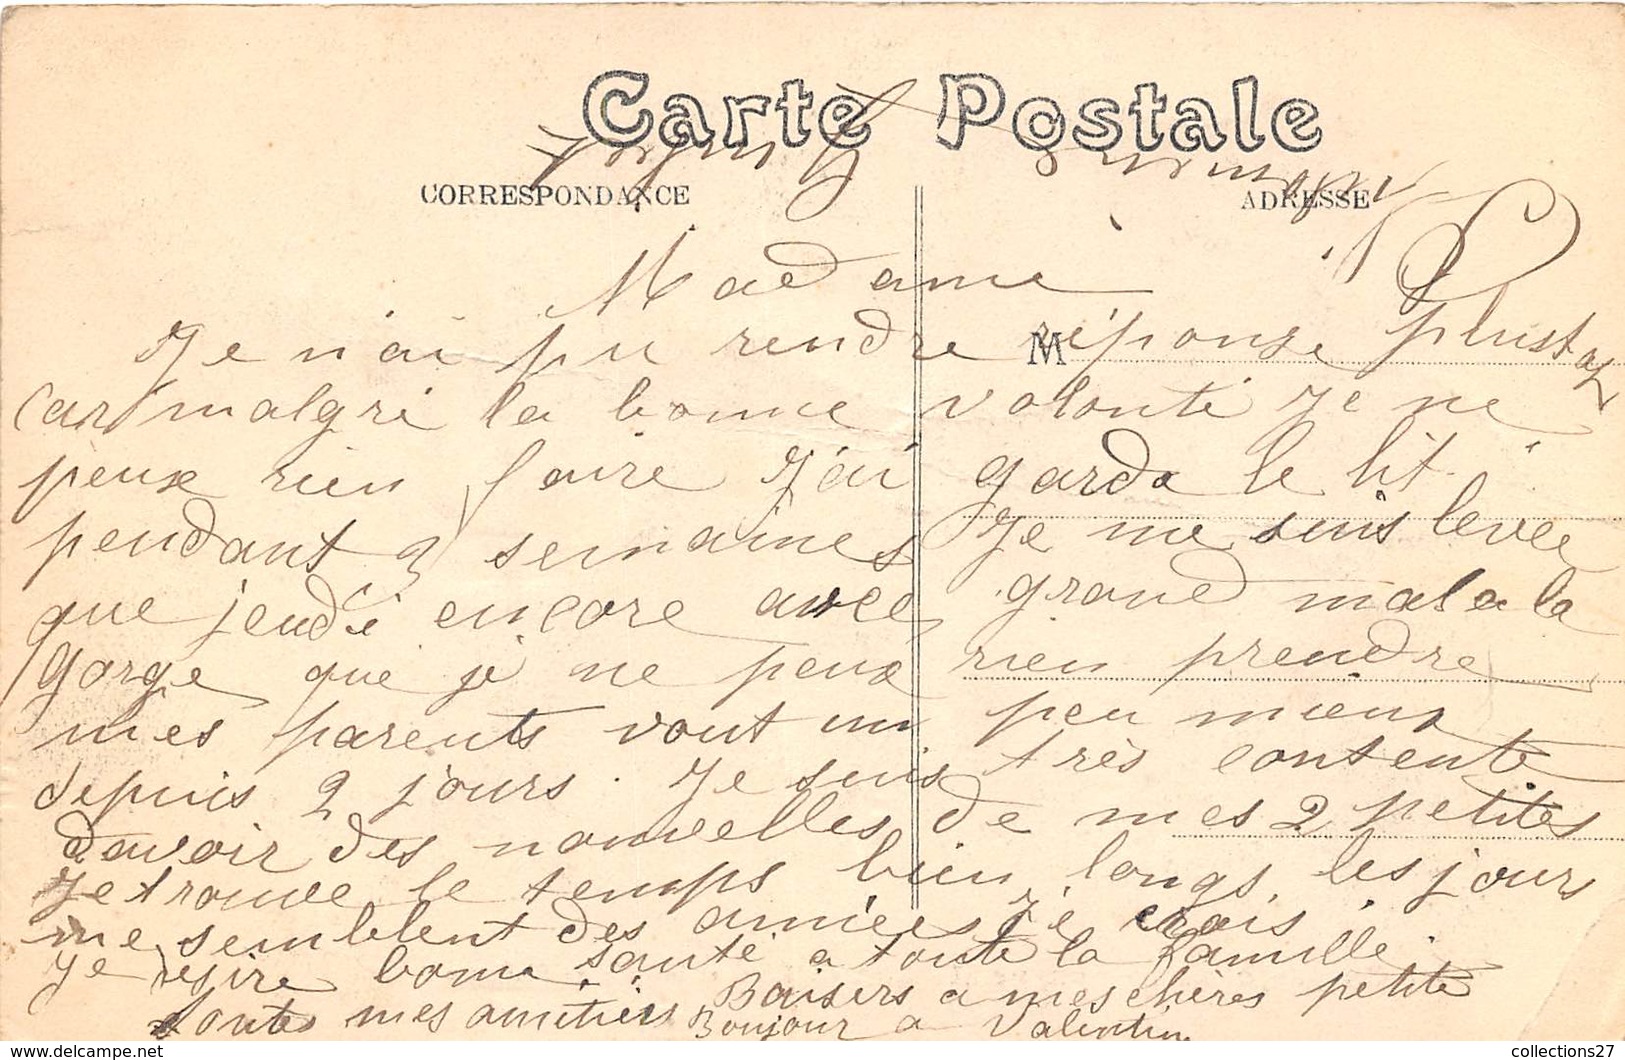 Carte Postale
CORRESPONDANCE
ADRESSE
Madame
Je n'ai pu rendre réponse plustot
M
Car malgri la bonne volonté je ne
peux rien faire J'ai garda le lit
pendant 3 semaines Je me suis levee
que jeudi encore avec grand mal a la
gorge que je ne peux rien prendre
mes parents vont un peu mieux
depuis 2 jours. Je suis très contente
davoir des nouvelles de mes 2 petites
Je trouve le temps bien longs. les jours
me semblent des années je crois.
Je désire bonne santé a toute la famille.
toutes mes amitiés Baisers a mes chères petite
Bonjour a Valentin
collections27